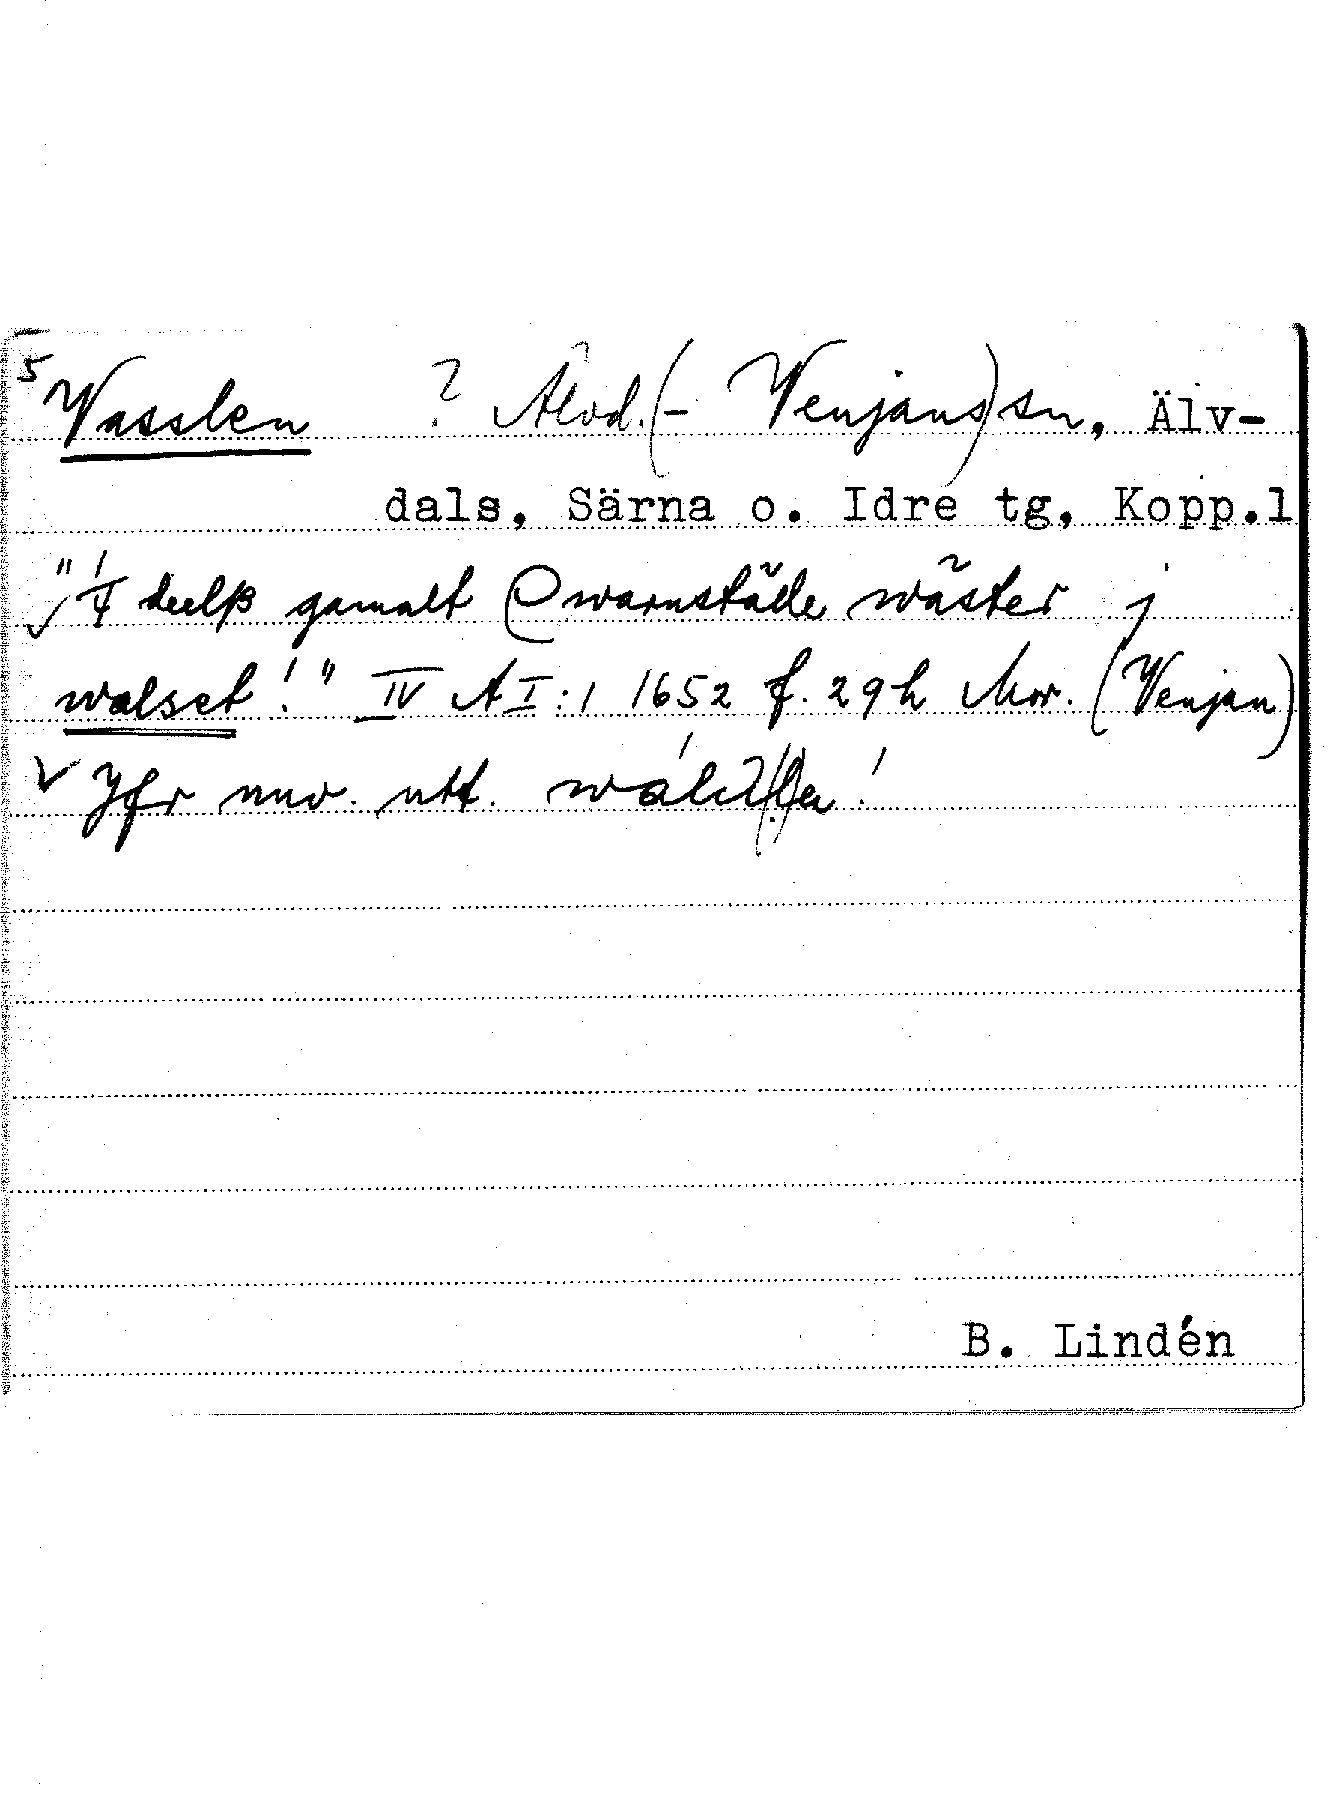 5 Vasslen ? Älvd. (- Venjans) sn, Älv-
dals, Särna o. Idre tg, Kopp.l
"1/4 deelß gamalt Qwarnställe wäster j
walset!" IV A I:1 1652 f. 29h Mor. (Venjan)
Jfr nuv. utt.
B. Lindén